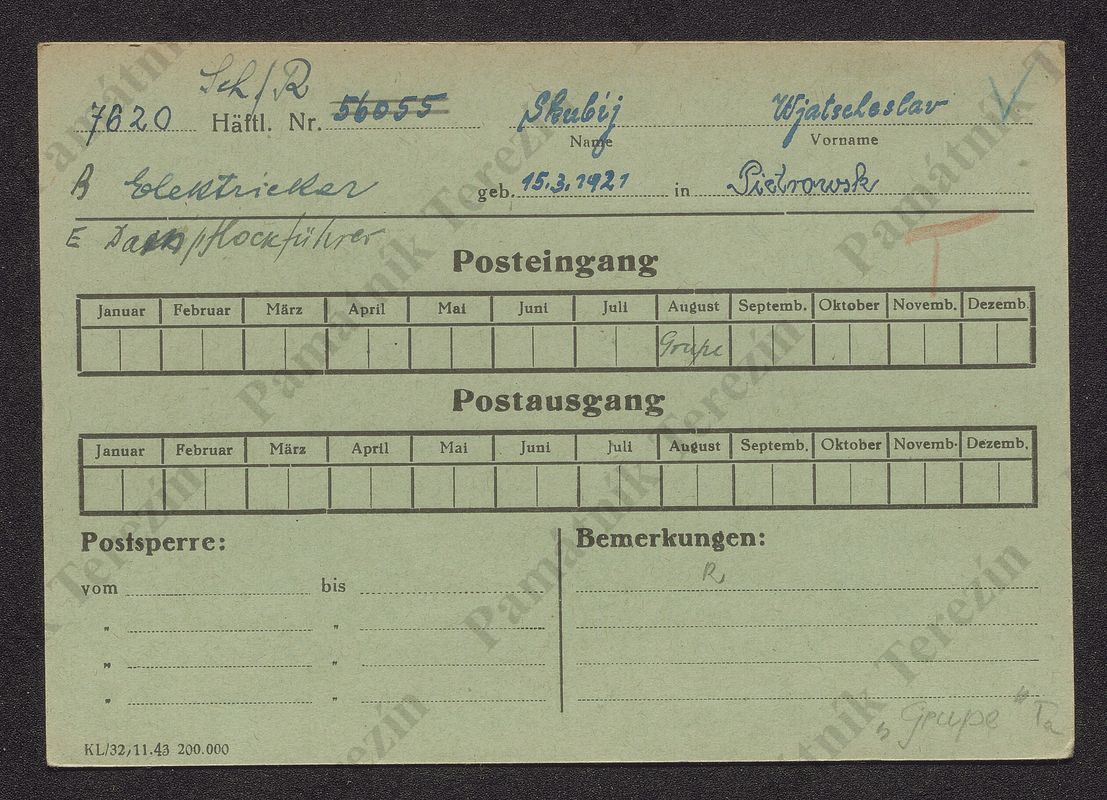 Sch/R
7620 Häftl. Nr. 56055 Skubij Wjatscheslav
Name Vorname
B Elektricker geb. 15.3.1921 in Pietrowsk
E
T
Posteingang
Januar Februar März April Mai Juni Juli August Septemb. Oktober Novemb. Dezemb.
Grupe
Postausgang
Januar Februar März April Mai Juni Juli August Septemb. Oktober Novemb. Dezemb.
Postsperre: Bemerkungen:
R
vom bis
" "
" "
" "
"Grupe" Ta
KL/32, 11.43 200.000
Památník Terezín